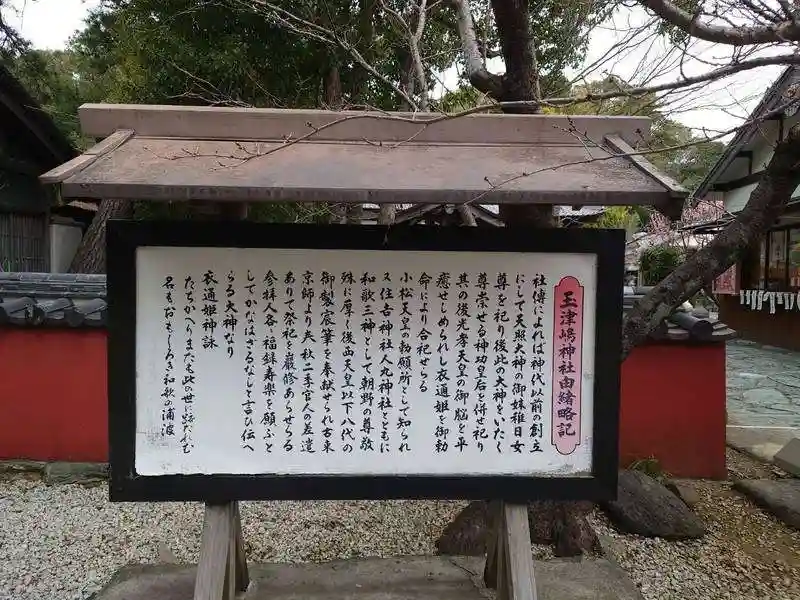 玉津嶋神社由緒略記
社伝によれば神代以前の創立
にして天照大神の御妹稚日女
尊を祀り後此の大神をいたく
尊崇せる神功皇后を併せ祀り
其の後光孝天皇の御脳を平
癒せしめられし衣通姫を御勅
命により合祀せらる
小松天皇の勅願所として知られ
又住吉神社人丸神社とともに
和歌三神として朝野の尊敬
殊に厚く後西天皇以下八代の
御製宸筆を奉献せられ古来
京師より春秋二季官人の差遣
ありて祭祀を厳修あらせらる
参拝人各〻福録寿楽を願ふと
してかなはざるなしと言ひ伝へ
らる大神なり
衣通姫神詠
たちかへりまたも此の世に跡たれむ
名もおもしろき和歌の浦波